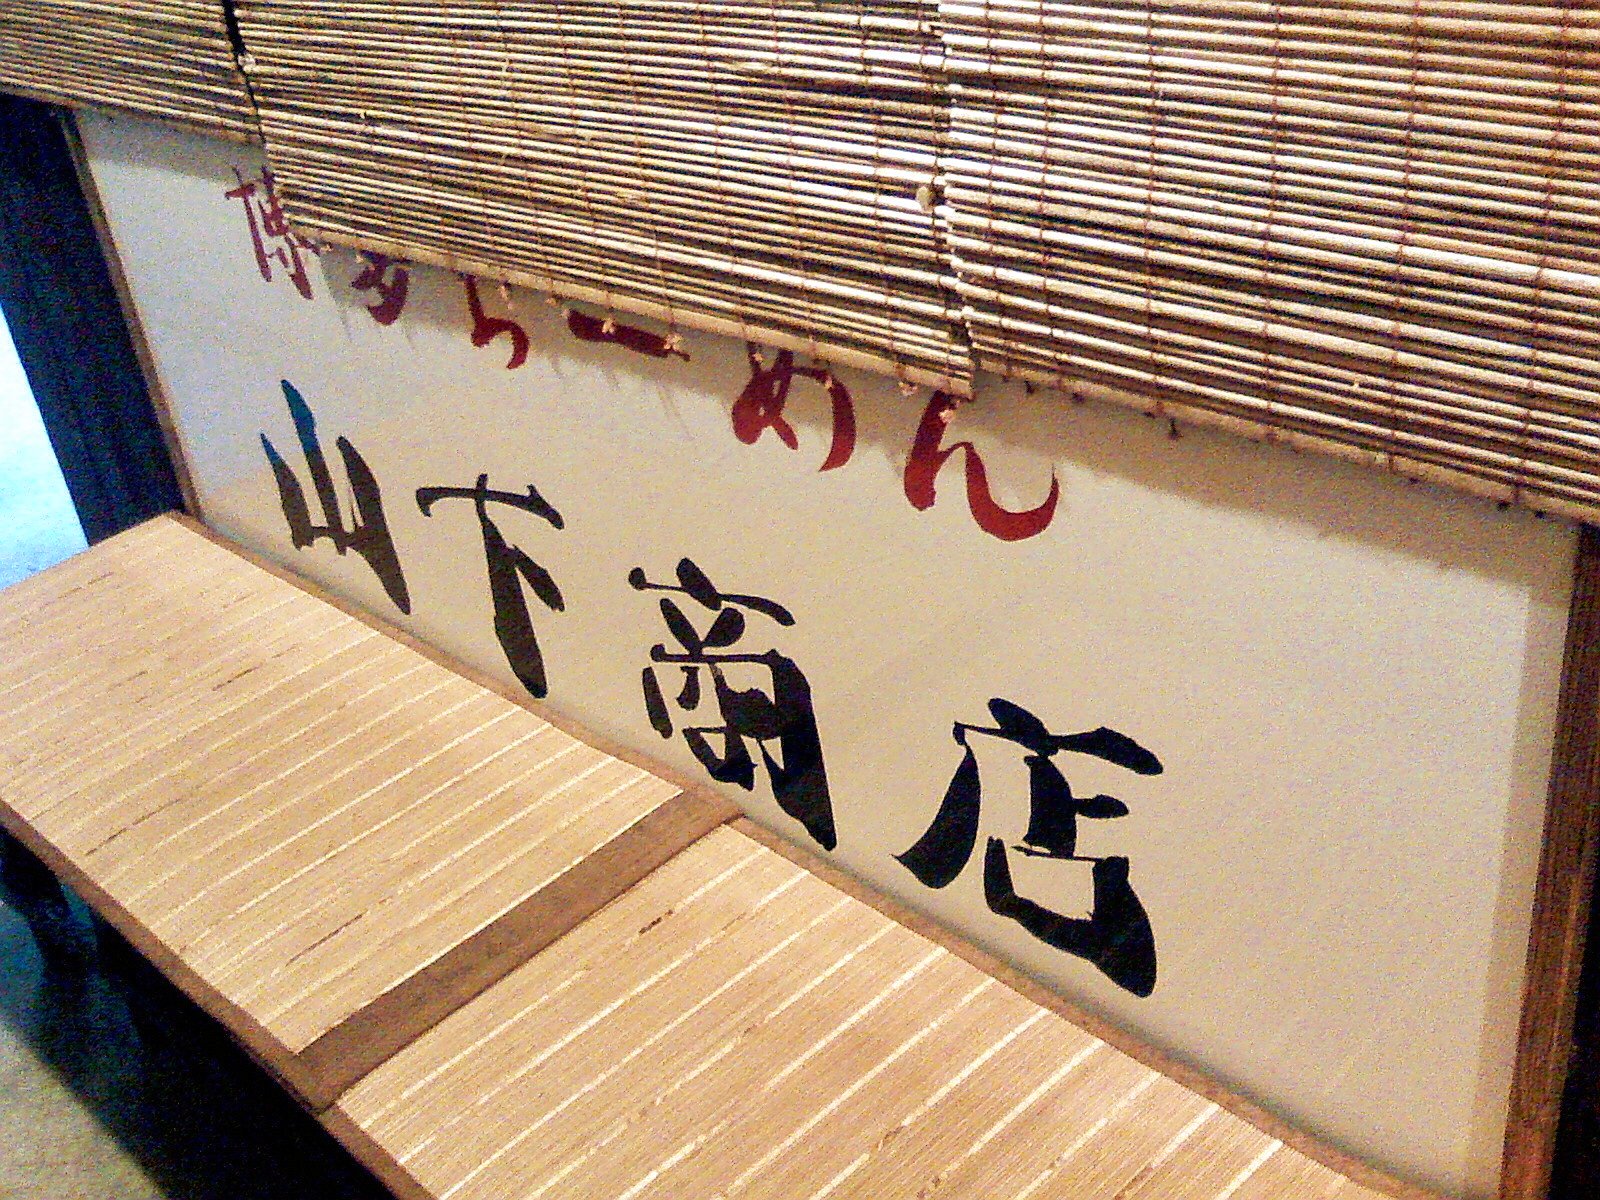 博多らーめん
山下商店